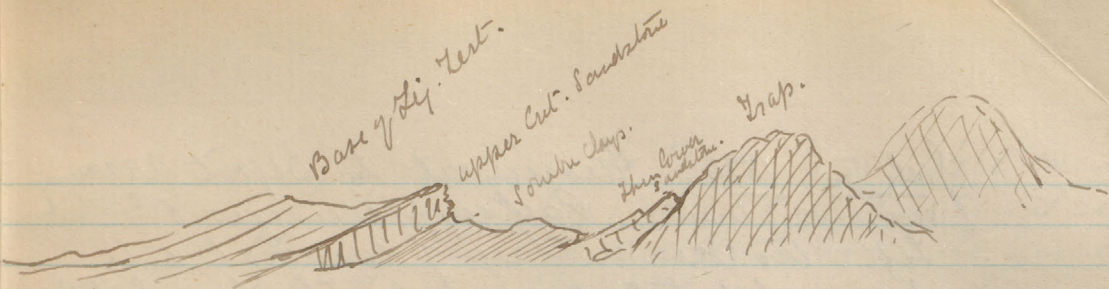 Base of Lig. Tert.
upper Cret. Sandstone
Sombre Clays.
Then Lower
Sandstone.
Trap.